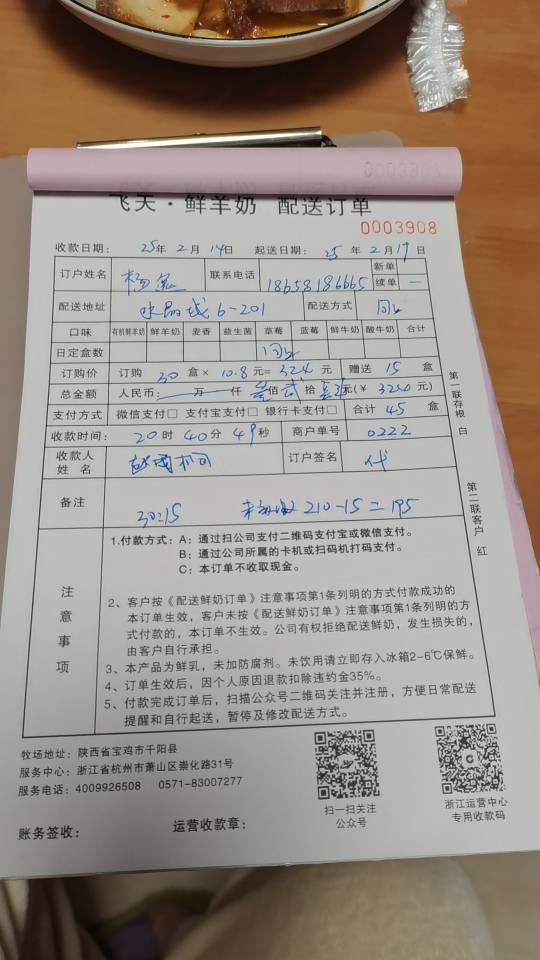 飞天·鲜羊奶 配送订单
0003908
收款日期: 25年 2月 14日 起送日期: 25年 2月 17日
订户姓名 杨 联系电话 18658186665 新单
续单 一
配送地址 水晶城6-201 配送方式 同上
口味 有机鲜羊奶 鲜羊奶 麦香 益生菌 草莓 蓝莓 鲜牛奶 酸牛奶 合计
日定盒数 同上
订购价 订购 30 盒× 10.8元= 324 元 赠送 15 盒
总金额 人民币: 万 仟 叁佰 贰 拾 元(¥ 324 元)
支付方式 微信支付□ 支付宝支付□ 银行卡支付□ 合计 45 盒
收款时间: 20时 40分 49秒 商户单号 0222
收款人姓名 订户签名 代
备注 30:15 210-15=195
第一联存根 白
第二联客户 红
注意事项
1.付款方式: A: 通过扫公司支付二维码支付宝或微信支付。
B: 通过公司所属的卡机或扫码机打码支付。
C: 本订单不收取现金。
2、客户按《配送鲜奶订单》注意事项第1条列明的方式付款成功的
本订单生效,客户未按《配送鲜奶订单》注意事项第1条列明的方
式付款的,本订单不生效。公司有权拒绝配送鲜奶,发生损失的,
由客户自行承担。
3、本产品为鲜乳,未加防腐剂。未饮用请立即存入冰箱2-6℃保鲜。
4、订单生效后,因个人原因退款扣除违约金35%。
5、付款完成订单后,扫描公众号二维码关注并注册,方便日常配送
提醒和自行起送,暂停及修改配送方式。
牧场地址: 陕西省宝鸡市千阳县
服务中心: 浙江省杭州市萧山区崇化路31号
服务电话: 4009926508 0571-83007277
扫一扫关注
公众号
浙江运营中心
专用收款码
账务签收: 运营收款章: